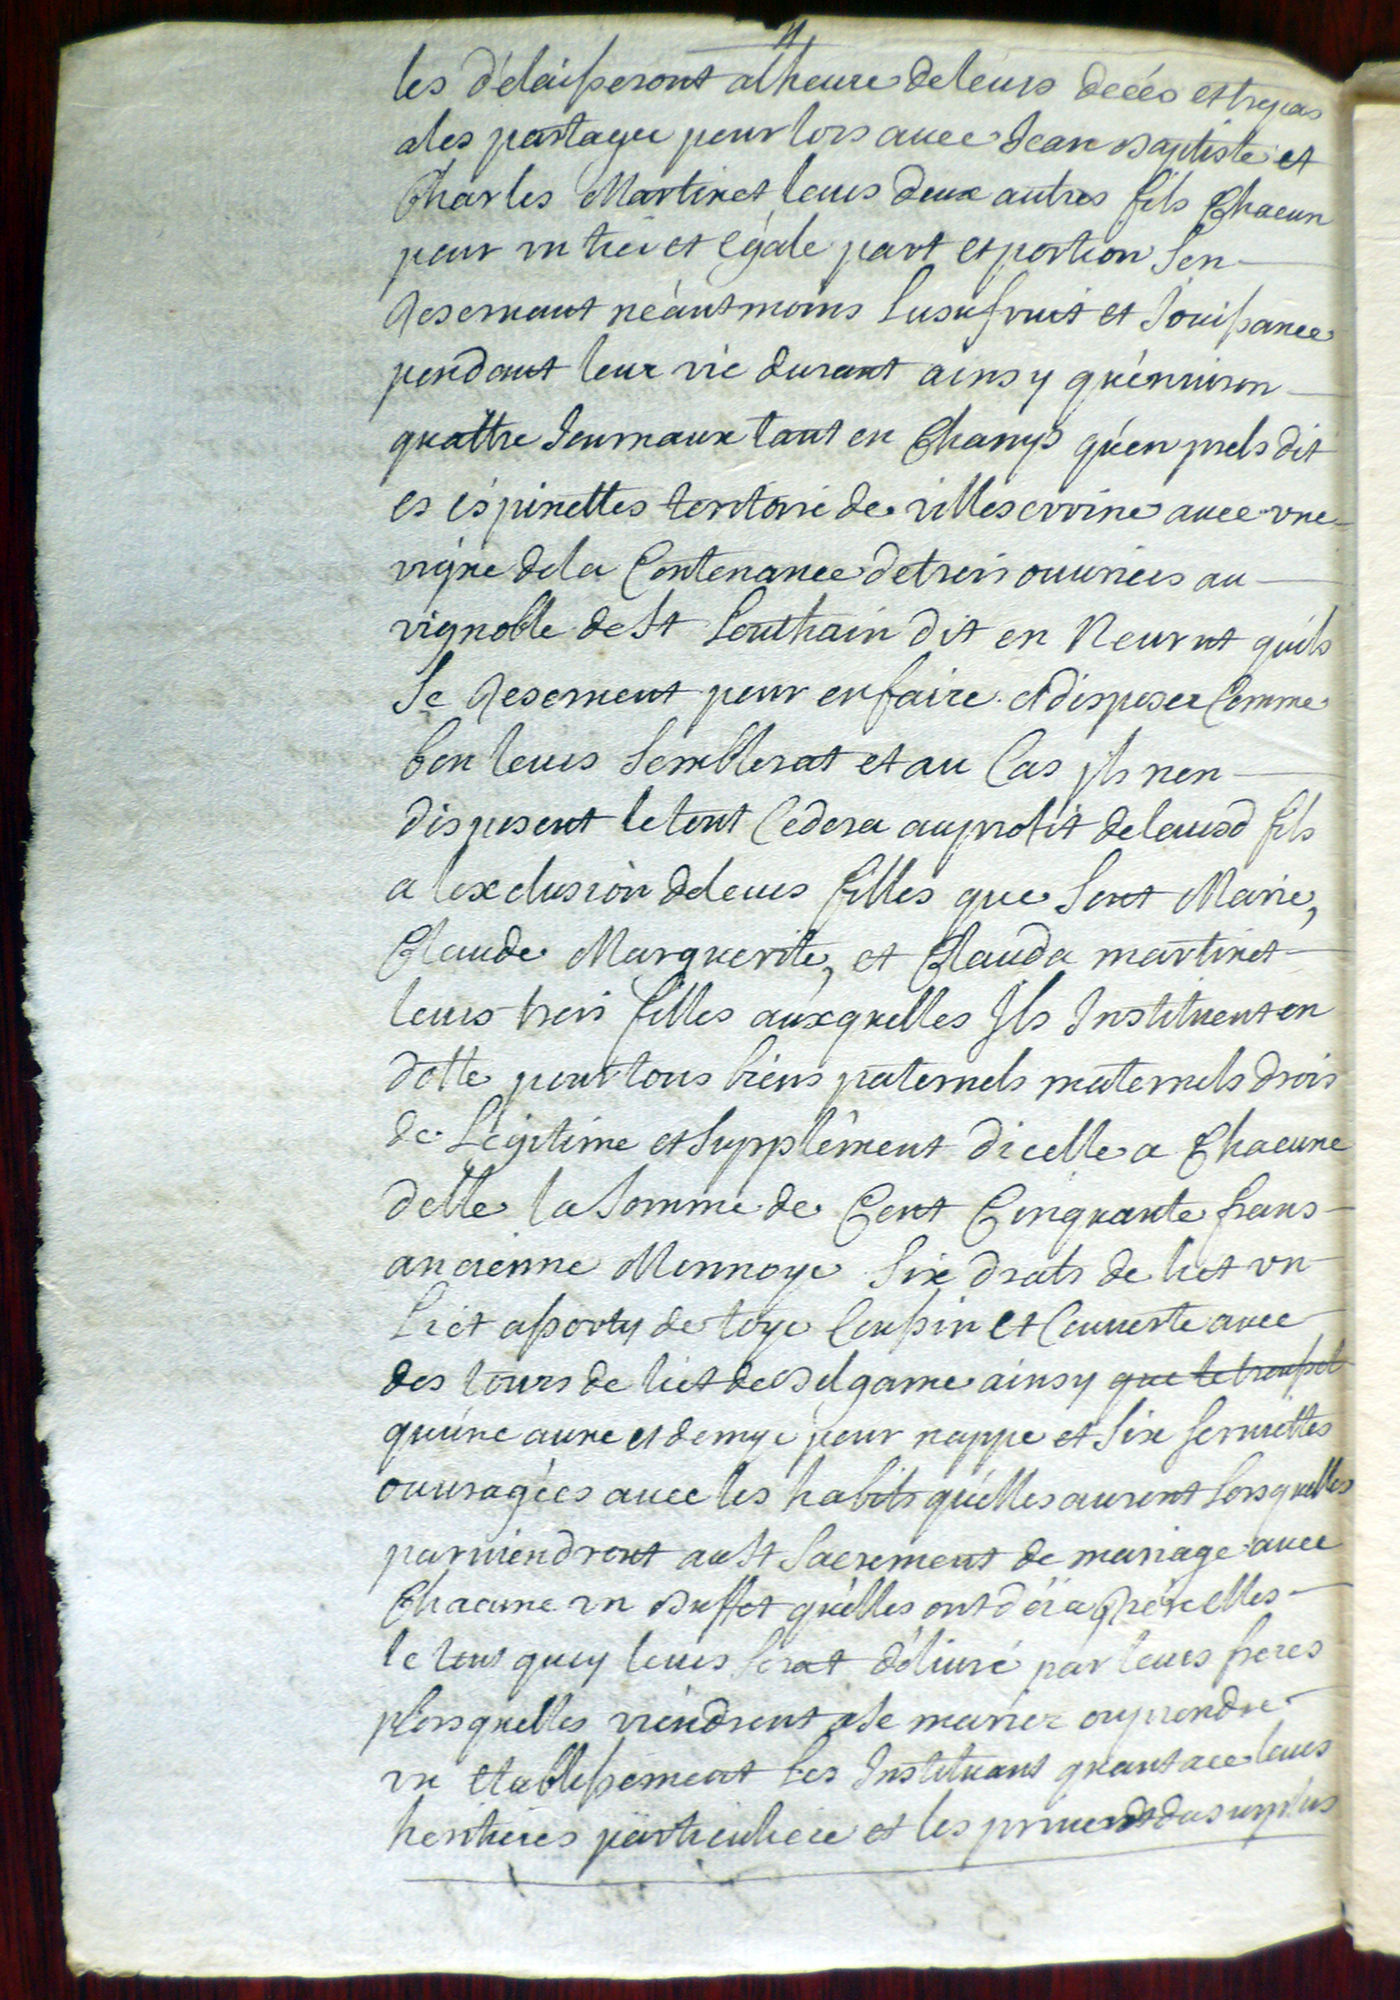 les délaisseront alheure deleurs décés et trepas
ales partager pour lors avec Jean Baptiste et
Charles Martinet leurs deux autres fils Chacun
pour vn tier et égale part et portion Sen
Reservant néantmoins Lusufruit et Jouissance
pendant leur vie durant ainsy quénuiron
quattre Journaux tant en Champs quén prels dit
es éspinettes territoire de villeserine avec vne
vigne dela Contenance detrois ouuriées au
vignoble de St Louthain dit en Neurnt quils
Se Reseruent pour enfaire et disposer Comme
bon leurs Semblerat et au Cas jls nen
disposent letout Cedera auprofit deleursd fils
a lexclusion deleurs filles que Sont Marie,
Claude Marguerite, et Clauda martinet
leurs trois filles auxquelles Jls Instituent en
dotte pour tous biens paternels maternels drois
de Légitime et Supplément dicelle a Chacune
delle la Somme de Cent Cinquante frans
ancienne Monnoye Six draps de lict vn
Lict assorty de toye Coussin et Couuerte avec
des tours de lict de Belgame ainsy que le troussel
quúne aune et demye pour nappe et Six Seruiettes
ouuragées avec les habits quélles auront Lorsquelles
paruiendront au St Sacrement de mariage avec
Chacune vn Buffet quélles ont déia Riére elles
le tout quoy leurs Serat déliuré par leurs freres
Lorsquelles viéndront a Se marier ou prendre
vn établissement Les Instituant quant a ce leurs
heritieres particuliere et les priuent du surplus